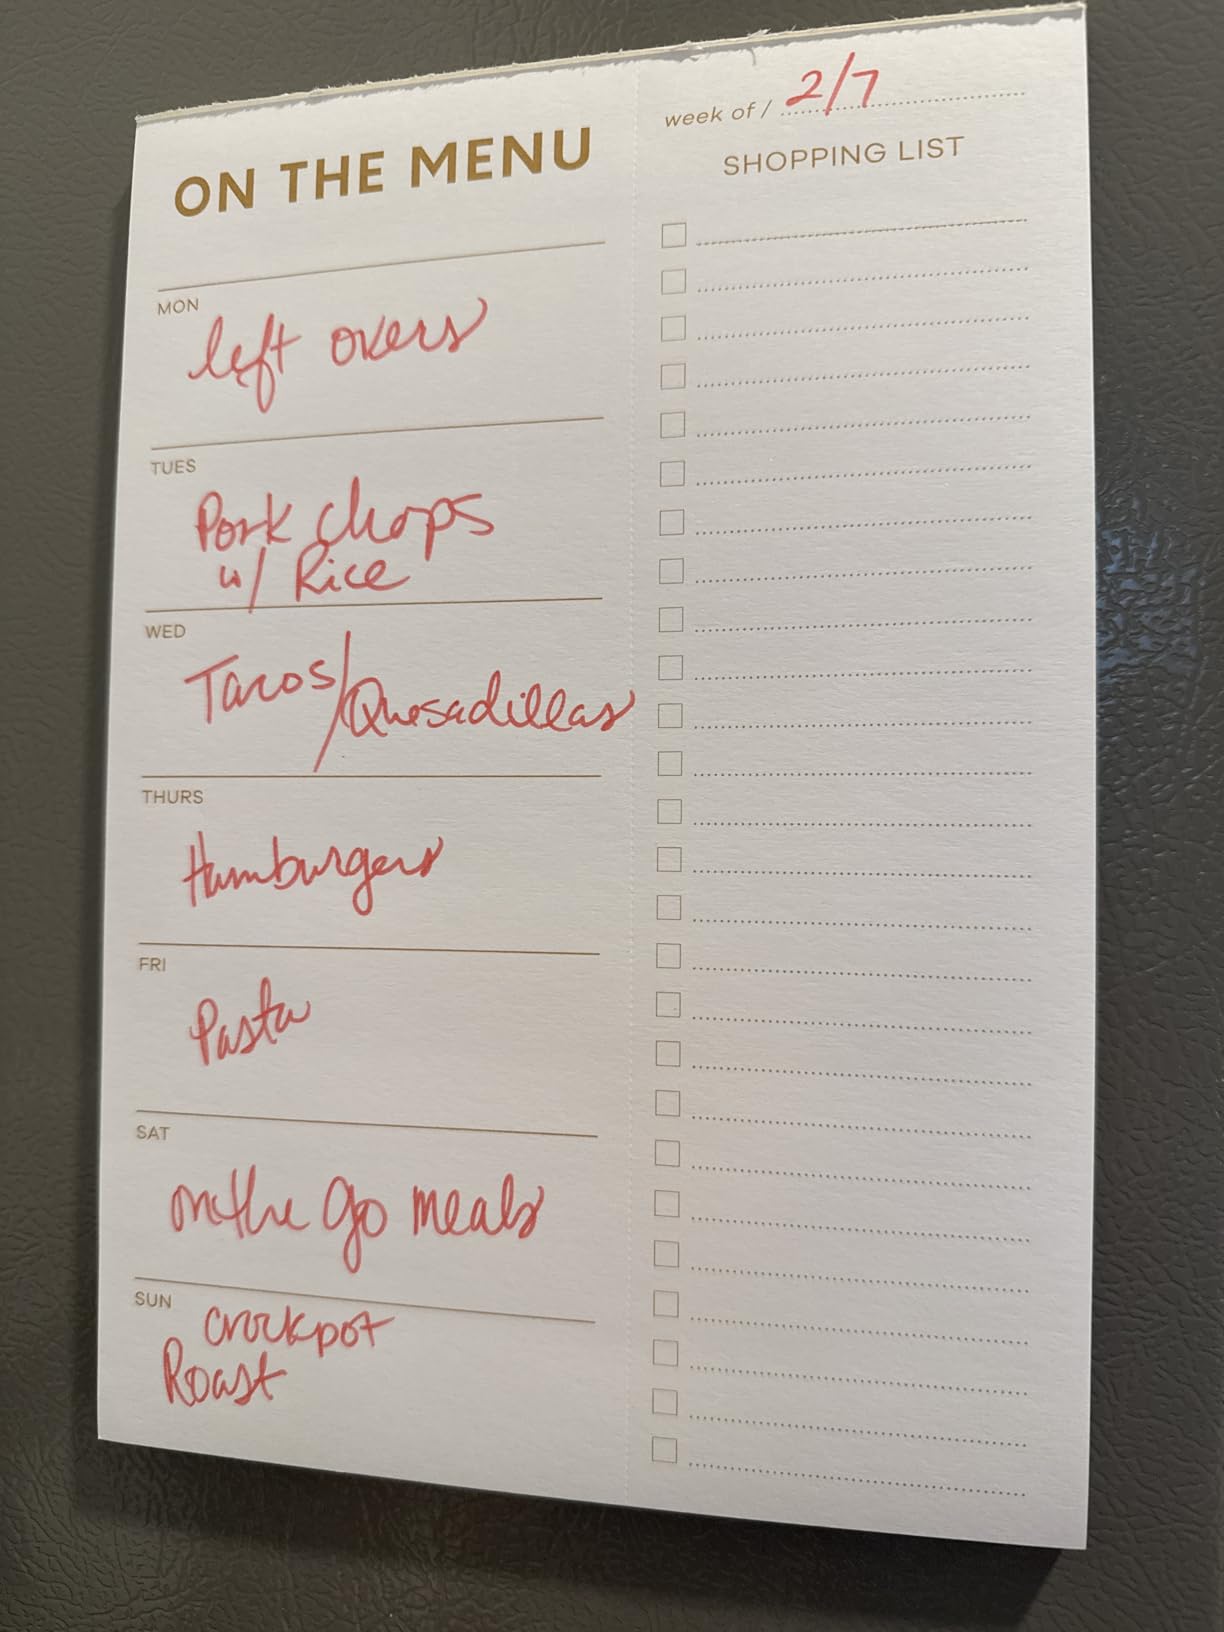 week of / 2/7
ON THE MENU
SHOPPING LIST
MON
left overs
TUES
Pork chops
w/ Rice
WED
Tacos/Quesadillas
THURS
Hamburgers
FRI
Pasta
SAT
on the go meals
SUN
crockpot
Roast